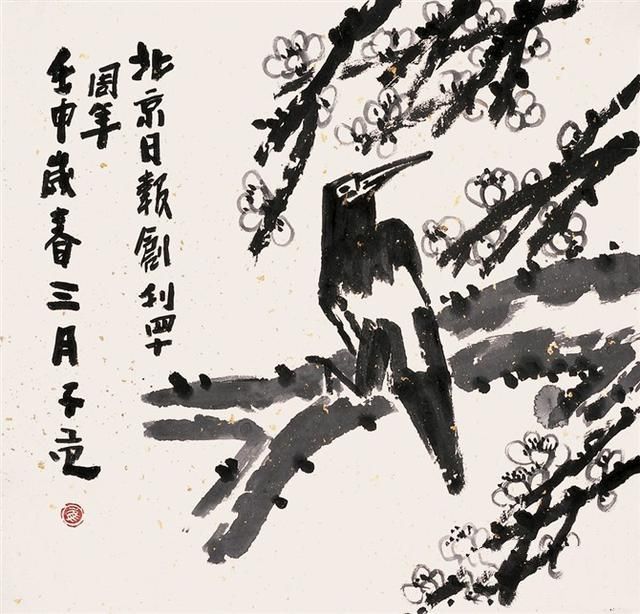 北京日報創刊四十
周年
壬申歲春三月子范